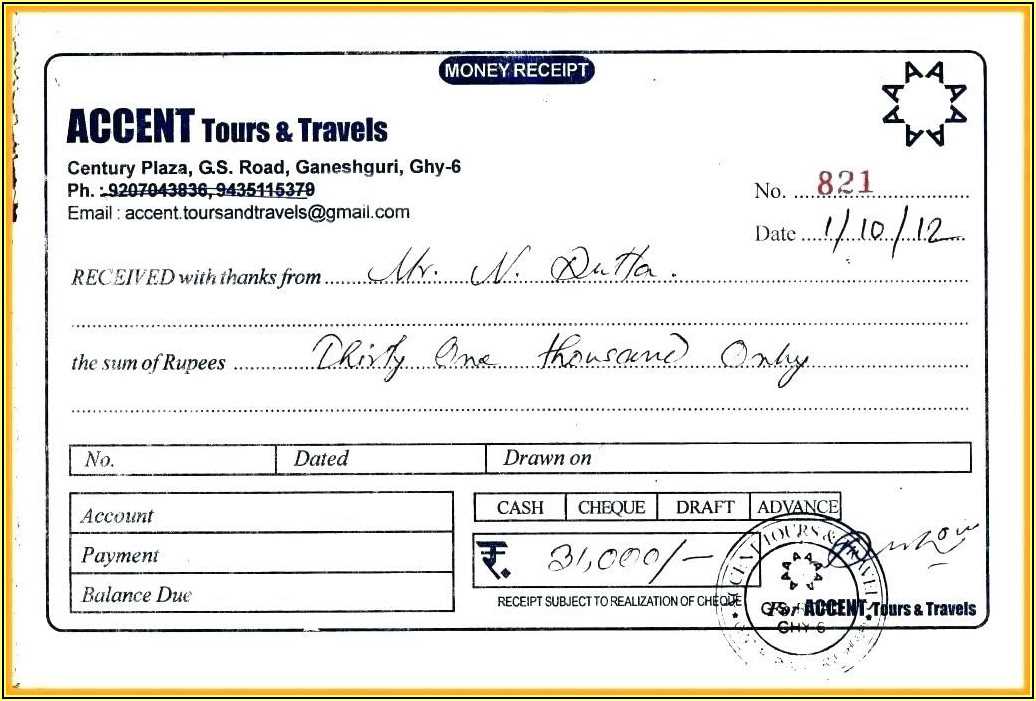 MONEY RECEIPT
ACCENT Tours & Travels
Century Plaza, G.S. Road, Ganeshguri, Ghy-6
Ph. : 9207043836, 9435115379
Email : accent.toursandtravels@gmail.com
No. 821
Date 1/10/12
RECEIVED with thanks from Mr. N. Dutta.
the sum of Rupees Thirty One thousand Only
No. Dated Drawn on
Account
Payment
Balance Due
CASH CHEQUE DRAFT ADVANCE
₹. 31,000/-
RECEIPT SUBJECT TO REALIZATION OF CHEQUE
For ACCENT Tours & Travels
ACCENT TOURS & TRAVELS
GHY-6